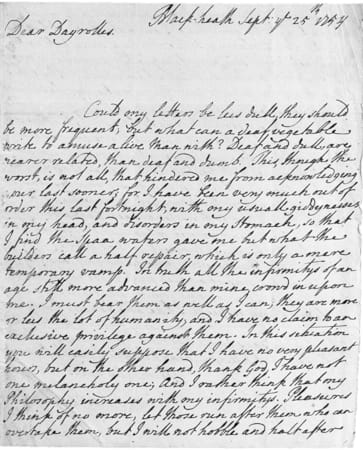 Black-heath Sept: ye 25th 1754
Dear Dayrolles.
Could my letters be less dull, they should
be more frequent; but what can a deaf vegetable
write to amuse a live man with? Deaf and dull are
nearer related, than deaf and dumb. This, though the
worst, is not all, that hindered me from acknowledging
your last sooner; for I have been very much out of
order this last fortnight, with my usual giddynesses
in my head, and disorders in my Stomach, so that
I find the Spaa waters gave me but what the
builders call a half repair, which is only a mere
temporary vamp. In truth all the infirmitys of an
age still more advanced than mine, crowd in upon
me. I must bear them as well as I can; they are more
or less the lot of humanity, and I have no claim to an
exclusive privilege against them. In this situation
you will easily suppose that I have no very pleasant
hours, but on the other hand, thank God, I have not
one melancholy one; And I rather think that my
Philosophy increases with my infirmitys. Pleasures
I think of no more, let those run after them who can
overtake them, but I will not hobble and halt after